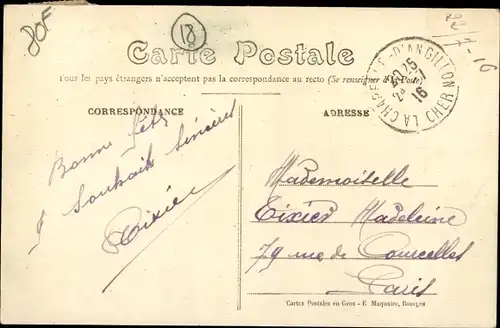 80F
18
22/7-16
Carte Postale
Tous les pays étrangers n'acceptent pas la correspondance au recto (Se renseigner à la Poste)
LA CHAPELLE-D'ANGILLON CHER
16
CORRESPONDANCE
ADRESSE
Bonne fête
& Souhaits Sincères
Tixier
Mademoiselle
Tixier Madeleine
79 rue de Courcelles
Paris
Cartes Postales en Gros - E. Maquaire, Bourges